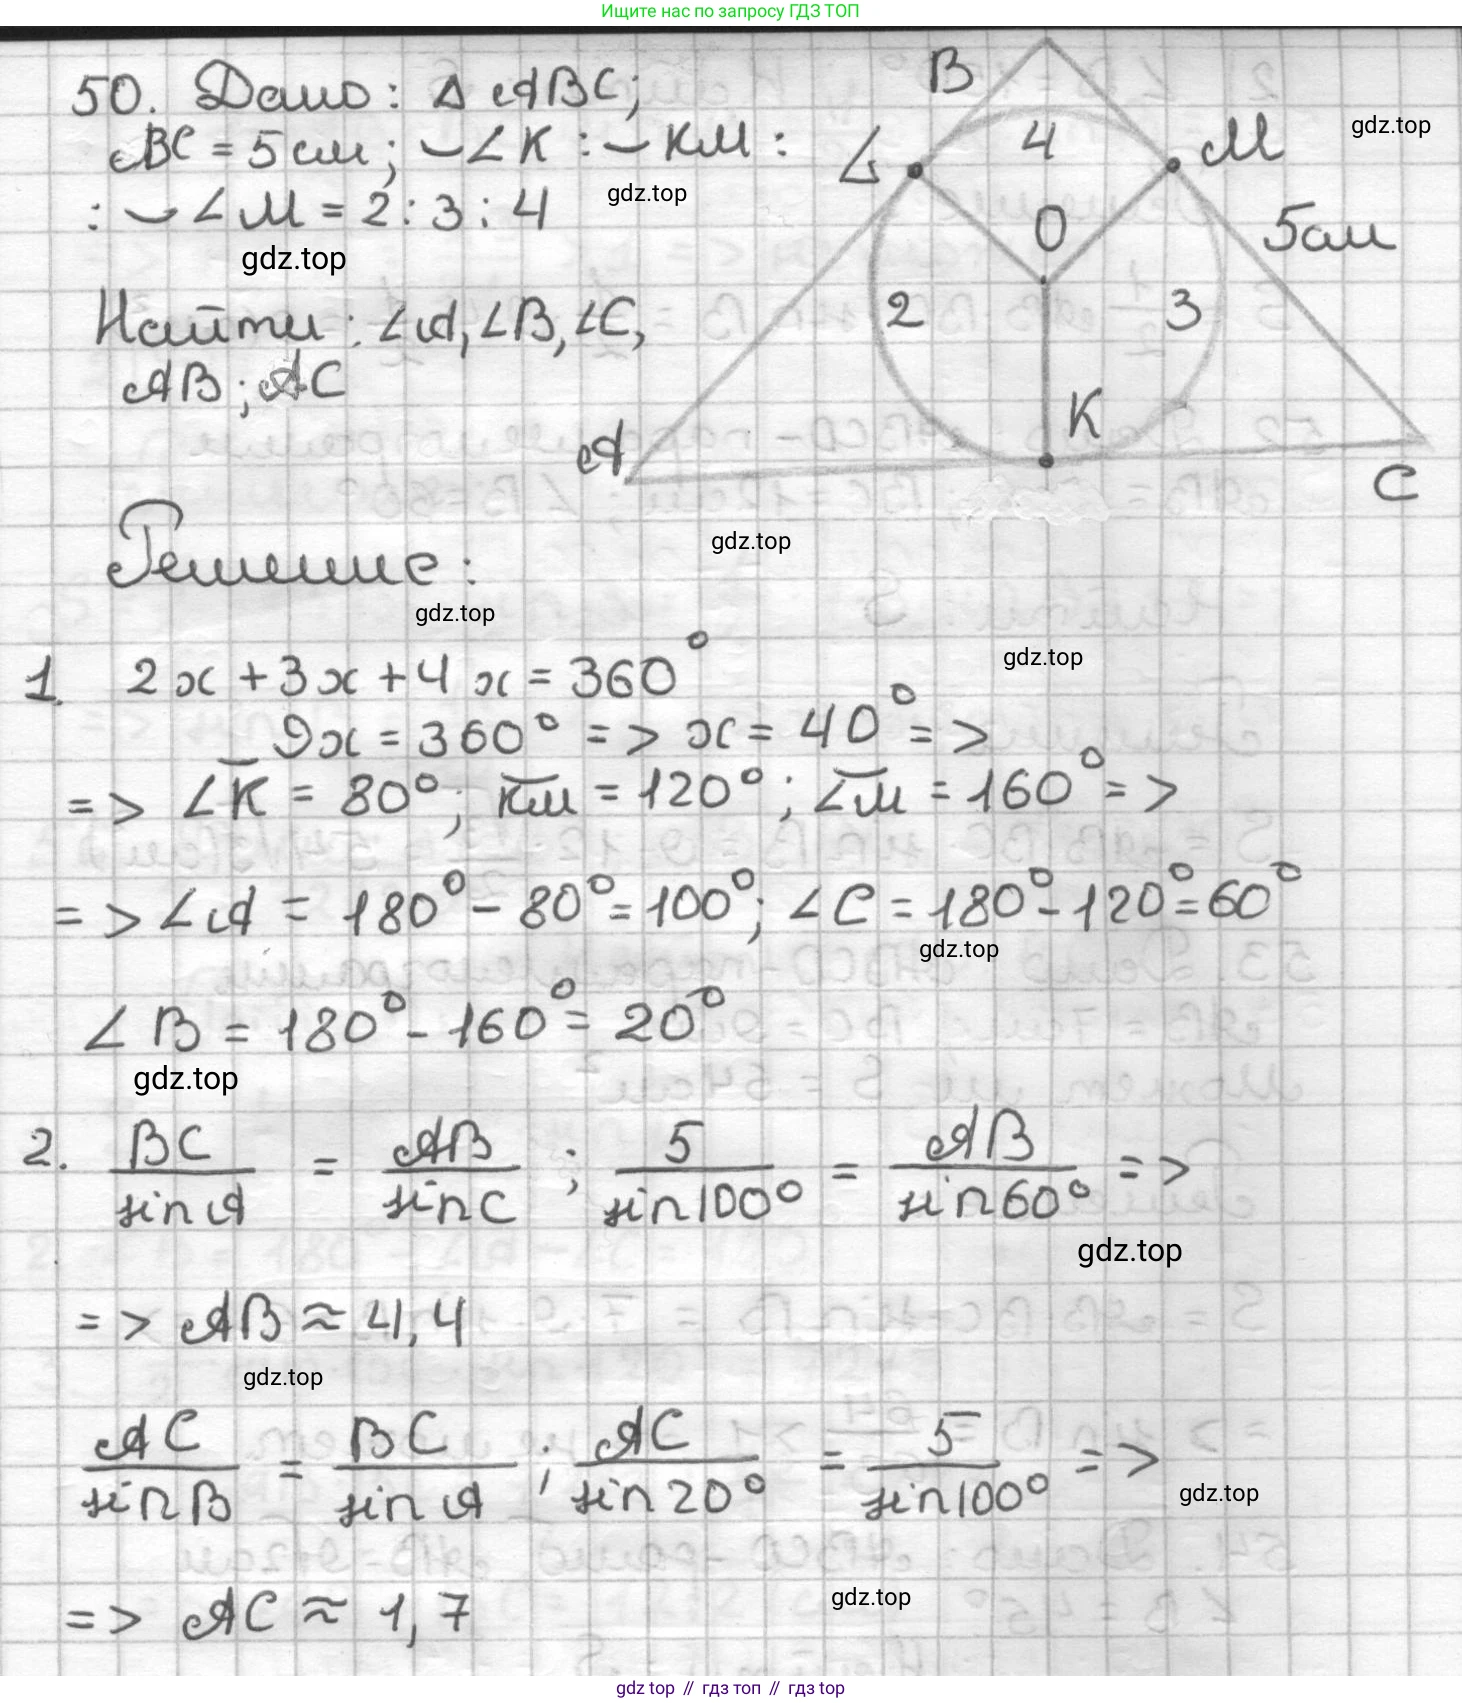 Ищите нас по запросу ГДЗ ТОП
50. Дано: Δ ABC;
BC = 5 см; ⌣LK : ⌣KM :
: ⌣LM = 2 : 3 : 4
gdz.top
gdz.top
Найти: ∠A, ∠B, ∠C,
AB; AC
B
L
4
M
gdz.top
O
5см
2
3
K
A
C
gdz.top
Решение:
gdz.top
gdz.top
1. 2x + 3x + 4x = 360°
9x = 360° => x = 40° =>
=> LK = 80°; KM = 120°; LM = 160° =>
=> ∠A = 180° - 80° = 100°; ∠C = 180° - 120° = 60°
gdz.top
∠B = 180° - 160° = 20°
gdz.top
2. BC/sin A = AB/sin C ; 5/sin 100° = AB/sin 60° =>
gdz.top
=> AB ≈ 4,4
gdz.top
AC/sin B = BC/sin A ; AC/sin 20° = 5/sin 100° =>
gdz.top
=> AC ≈ 1,7
gdz.top
gdz top // гдз топ // гдз top